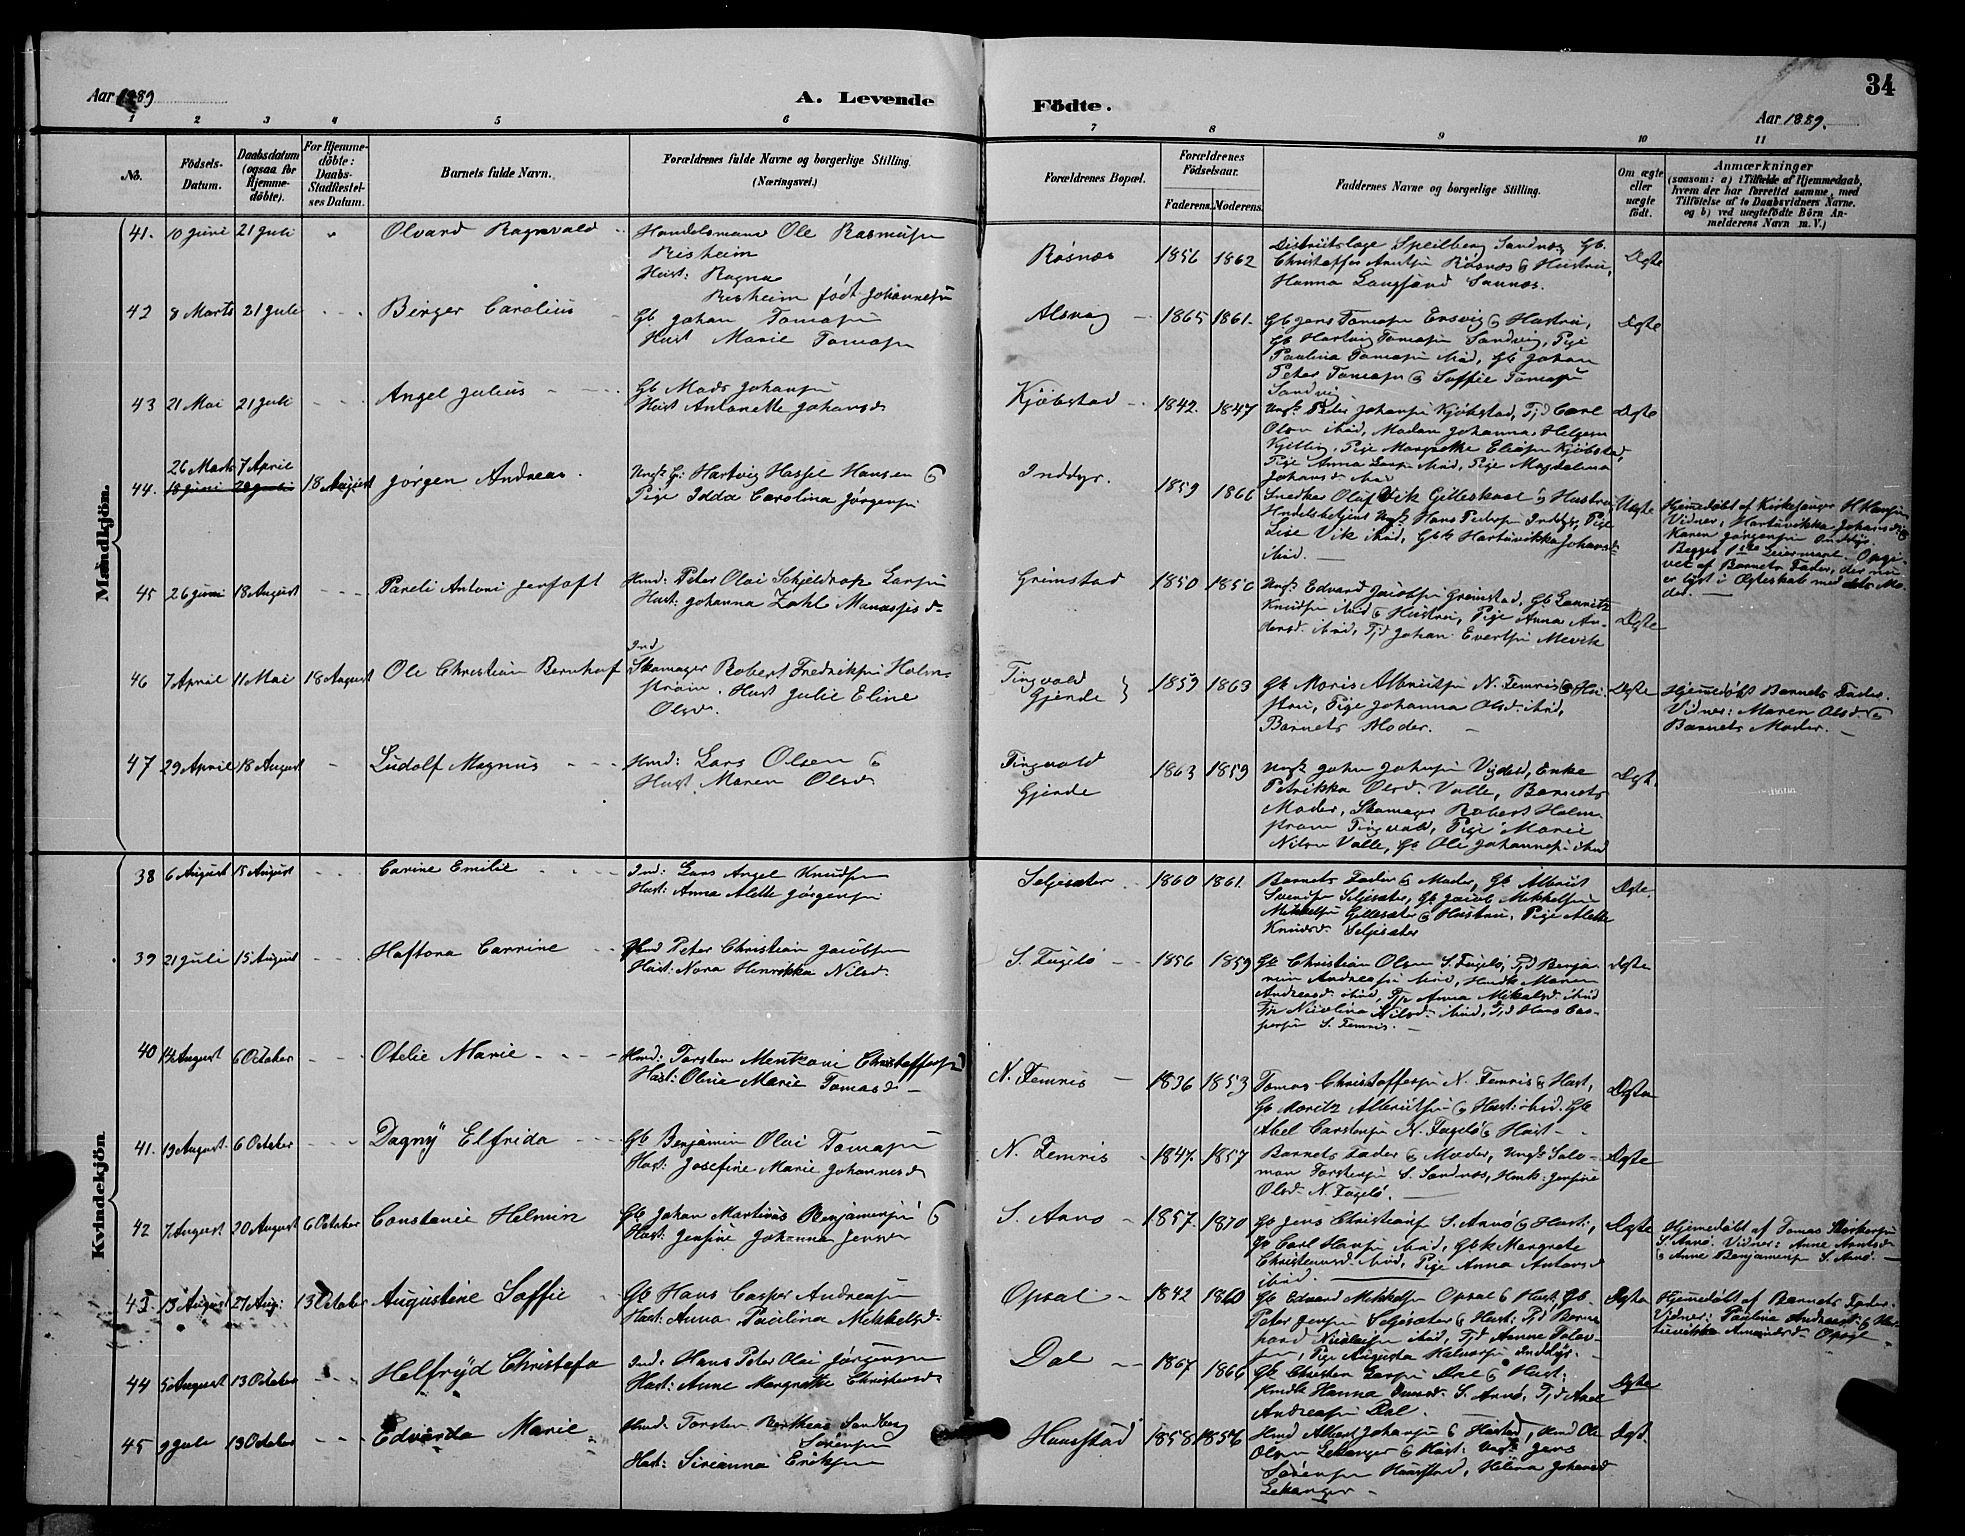 Aar 1889
A. Levende
Födte.
34
Aar 1889.
1 2 3 4 5 6 7 8 9 10 11
No.
Födsels-
Datum.
Daabsdatum
(ogsaa for
Hjemme-
döbte).
For Hjemme-
döbte:
Daabs-
Stadfæstel-
ses Datum.
Barnets fulde Navn.
Forældrenes fulde Navne og borgerlige Stilling.
(Næringsvei.)
Forældrenes Bopæl.
Forældrenes
Födselsaar.
Faderens. Moderens.
Faddernes Navne og borgerlige Stilling.
Om ægte
eller
uægte
födt.
Anmærkninger
(saasom: a) i Tilfælde af Hjemmedaab,
hvem der har forrettet samme, med
Tilföielse af to Daabsvidners Navne.
og b) ved uægtefödte Börn An-
melderens Navn m. V.)
Mandkjön.
41. 10 Juni 21 Juli Olvard Ragnvald
Handelsmand Ole Rasmusen
Risheim
Hust: Ragna
Risheim født Johannesen
Røsnæs 1856 1862
Sandnæs, Gb.
Røsnæs & Hustru,
Hanna
Ægte
42 8 Marts 21 Juli - - - Birger Carolius
Gb Johan Tomasen
Hust Marie Tomasen
Alsvag 1865 1861.
Gb Jens Tomasen & Hustru,
Gb Hartvig Tomasen Sandvig, Pige
Paulina Tomasen ibid, Gb Johan
Peter Tomasen & Soffie Tomasen
Sandvig
Ægte
43 21 Mai 21 Juli - - - Angel Julius
Gb Mads Johansen
Hust Antonette Johansd
Kjøbstad 1842. 1847
Ungk Peder Johansen Kjøbstad, Tj Carl
Olsen ibid, Madam Johanna Helgesen
Pige Margrethe Eliasen Kjøbstad,
Pige Anna Larsen ibid, Pige Magdalena
Johansd ibid
Ægte
44. 26 Marts 7 April
18 Juni 28 Juli 18 August Jørgen Andreas
Ungk G: Hartvig Hassel Hansen &
Pige Idda Carolina Jørgensen
Inddyr. 1859 1866
Snedker Olaf Vik Gilleskaal & Hustru,
Ungk Hans Pedersen Inddyr, Pige
Lise Vik ibid, Hartvikka Johansd
ibid. —
Uægte
Hjemmedøbt af Kirkesanger H Hansen
Vidner: Hartvikka Johansd &
Karen Jørgensen Inddyr.
Begges 1ste Leiermaal. Opgi-
vet af Barnets Fader, der nu
er lyst i Ægteskab med dets Mo-
der. —
45 26 Juni 18 August - - - Pareli Antoni Jenfaft
Hmd: Peter Olai Schjeldrop Larsen
Hust: Johanna Zahl Manassesd
Grimstad 1850 1856
Ungk Edvard Jacobsen Grimstad, Gb Lauritz
Knudsen ibid & Hustru, Pige Anna An-
dersd. ibid, Tj Johan Evertsen Mevik
Ægte
46 7 April 11 Mai 18 August Ole Christian Bernhof
Ind
Skomager Robert Fredriksen Holm-
strøm. Hust Julie Eline
Olsd.
Tingvold
Gjende } 1859 1863
Gb Moris Albriktsen N. Femris & Hu-
stru, Pige Johanna Olsd. ibid,
Barnets Moder.
Ægte
Hjemmedøbt Barnets Fader.
Vidner: Maren Olsd &
Barnets Moder. —
47 29 April 18 August - Ludolf Magnus - - -
Hmd: Lars Olsen &
Hust. Maren Olsd
Tingvold
Gjende 1863 1859
Ungk Johan Johansen Vigdel, Enke
Petrikka Olsd. Valle, Barnets
Moder, Skomager Robert Holm-
strøm Tingvold, Pige Marie
Nilsen Valle, Gb Ole Johannesen ibid
Ægt.
Kvindekjön
38 6 August 15 August - - - Carine Emilie
Ind: Lars Angel Knudsen
Hust: Anna Alette Jørgensen
Seljesæter 1860 1861.
Barnets Fader & Moder, Gb Albrikt
Svendsen Seljesæter, Gb Jacob Mikkelsen
Mikkelsen Gillesæter & Hustru, Pige Alette
Knudsd. Seljesæter
Ægte.
39 21 Juli 15 August - - - Haftora Carrine
Hmd Peter Christian Jacobsen
Hust: Nora Henrikka Nilsd
S. Fugelø 1856 1859
Gb Christian Olsen S. Fugelø, Tjd Benja-
min Andreassen ibid, Maren
Andreasd. ibid, Tjp Anna Mikalsd. ibid
Tjp Nicolina Nilsd. ibid, Tjd Hans Cas-
persen S. Femris. —
Ægte
40 14 August 6 October - - - Otelie Marie
Hmd: Torsten Mentzoni Christoffersen
Hust: Oline Marie Tomasd —
N. Femris 1836 1853
Tomas Christoffersen N. Femris & Hust,
Gb Moritz Albriktsen & Hust: ibid. Gb
Abel Carstensen N. Fugelø & Hust —
Ægte
41. 19 August 6 October - - - Dagny Elfrida
Gb Benjamin Olai Tomasen
Hust: Josefine Marie Johannesd
N. Femris 1847. 1857
Barnets Fader & Moder, Ungk Salo-
mon Torstensen S. Sandnæs, Jensine
Olsd. N. Fugelø. —
Ægte
42 7 August 20 August 6 October Constanse Helmin
Gb Johan Martinus Benjaminsen &
Hust: Jensine Johanna Jensd
S. Arnø 1857. 1870
Gb Jens Christians S. Arnø & Hust:,
Gb Carl Hansen ibid, Margrete
Christensd. ibid, Pige Anna Antonsd
ibid. —
Ægte
Hjemmedøbt af Tomas
S. Arnø. Vidner: Anne Arntsd
& Anne Benjaminsen S. Arnø. —
43 13 August 27 Aug: 13 October Augustine Soffie
Gb Hans Casper Andreasen
Hust: Anna Paulina Mikkelsd
Opsal 1842 1860
Gb Edvard Mikkelsen Opsal & Hust. Gb
Peter Jensen Seljesæter & Hust: Tj
Nicolaisen ibid,
Pige Augusta Halvorsen Inddyr. —
Ægte
Hjemmedøbt af Barnets Fader.
Vidner: Paulina Andreasd & Har-
tvikka Amundsd. Opsal
44 5 August 13 October - - - Helfryd Christofa
Ind: Hans Peter Olai Jørgensen
Hust: Anne Margrethe Christensd
Dal 1867 1866
Gb Christen Larsen Dal & Hust:
Hanna S. Arnø, Tjd Axel
Andreasen Dal.
Ægte
45 9 Juli 13 October - - - Edvarda Marie
Hmd: Torsten Bertheus Sandberg
Sørensen
Hust: Sirianna Eriksen
Haustad 1858 1856
Hmd Albert Johansen & Hustru, Hmd Ole
Olsen Lekanger & Hust: Ungk Jens
Sørensen Haustad, Helena Johansd
Lekanger —
Ægt.